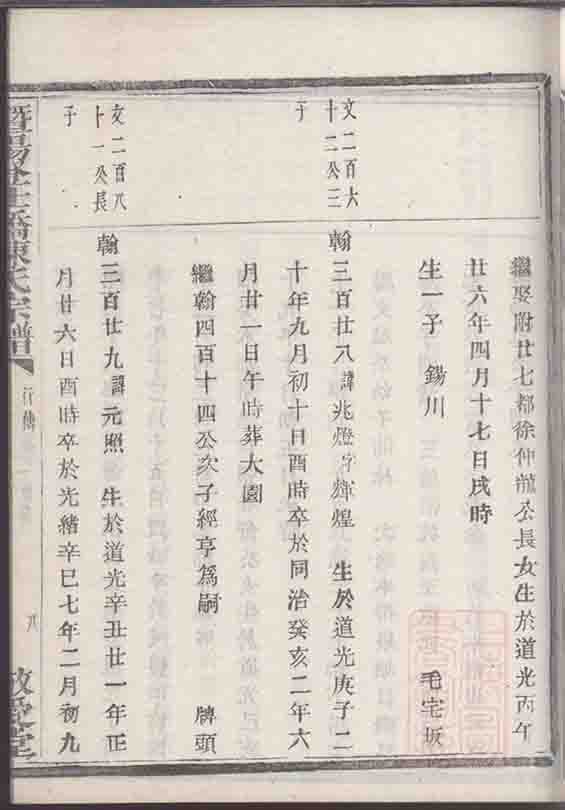 繼娶附廿七都徐仲龍公長女生於道光丙午
廿六年四月十七日戌時
生一子　錫川　毛宅坂
文二百六
十二公三
子
翰三百廿八諱兆燈字輝煌　生於道光庚子二
十年九月初十日酉時卒於同治癸亥二年六
月廿一日午時葬大園
繼翰四百十四公次子經亨為嗣　牌頭
文二百八
十一公長
子
翰三百廿九諱元照　生於道光辛丑廿一年正
月廿六日酉時卒於光緒辛巳七年二月初九
暨陽
陳氏宗譜
行傳
八
敬愛堂